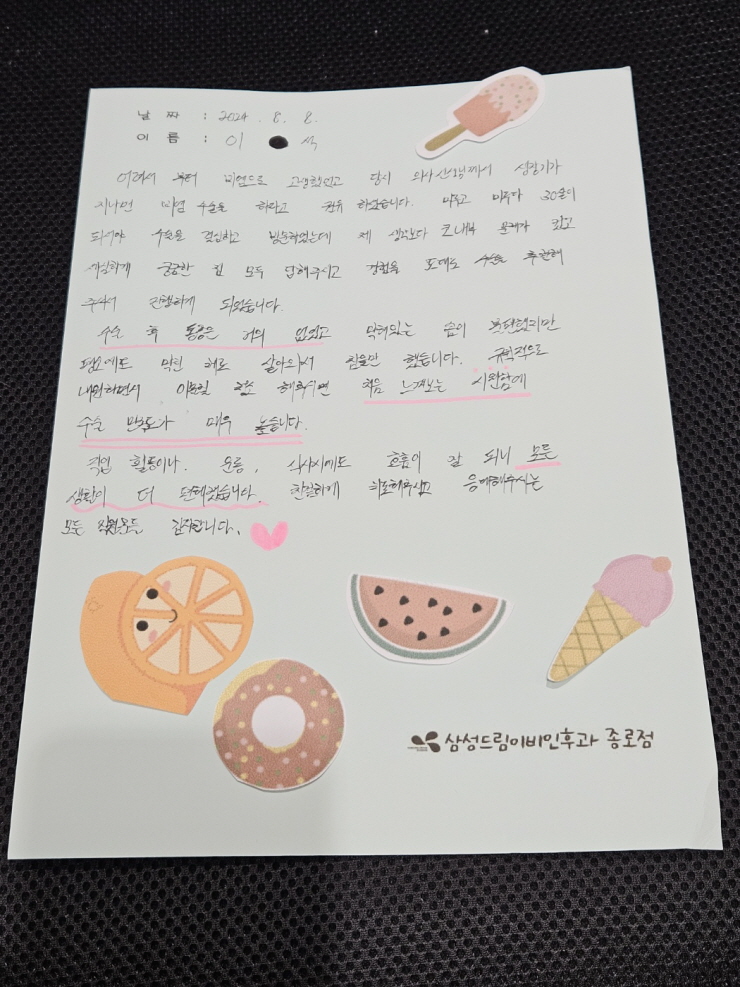 날 짜 : 2024. 8. 8.
이 름 : 이 석
어려서 부터 비염으로 고생했었고 당시 의사선생님께서 성장기가
지나면 비염 수술을 하라고 권유 하셨습니다. 미루고 미루다 30살이
되서야 수술을 결심하고 방문하였는데 제 생각보다 코내부 문제가 있고
세심하게 궁금한 점 모두 답해주시고 경험을 토대로 수술을 추천해
주셔서 진행하게 되었습니다.
수술 후 통증은 거의 없었고 막혀있는 숨이 못했지만
평소에도 막힌 채로 살아와서 참을만 했습니다. 규칙적으로
내원하면서 이물질 청소 해주시면 처음 느껴보는 시원함에
수술 만족도가 매우 높습니다.
직업 활동이나. 운동, 식사시에도 호흡이 잘 되니 모든
생활이 더 편해졌습니다. 친절하게 치료해주시고 응대해주시는
모든 직원분들 감사합니다.
삼성드림이비인후과 종로점